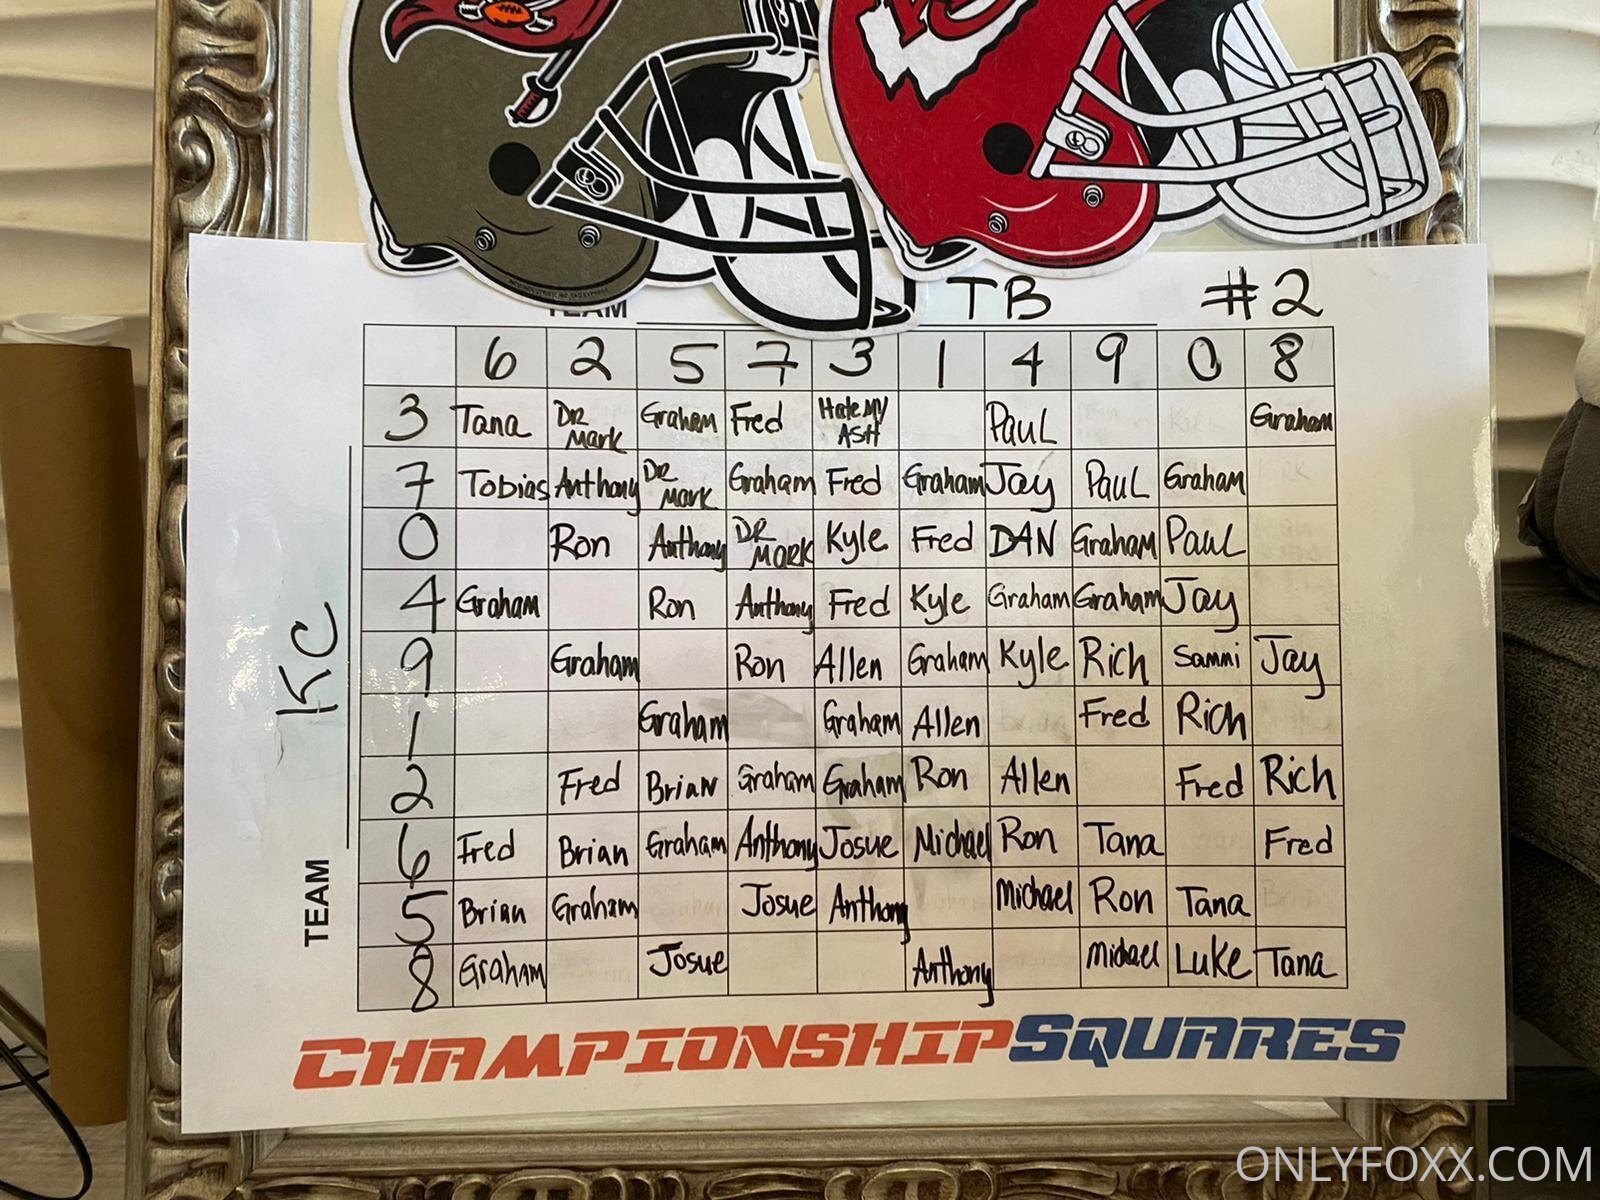 TEAM TB #2
6 2 5 7 3 1 4 9 0 8
3 Tana DR MARK Graham Fred Hate MY ASH PAUL Graham
7 Tobias Anthony DR MARK Graham Fred Graham Jay PAUL Graham
0 Ron Anthony DR MARK Kyle Fred DAN Graham PAUL
4 Graham Ron Anthony Fred Kyle Graham Graham Jay
9 Graham Ron Allen Graham Kyle Rich Sammi Jay
1 Graham Graham Allen Fred Rich
2 Fred Brian Graham Graham Ron Allen Fred Rich
6 Fred Brian Graham Anthony Josue Michael Ron Tana Fred
5 Brian Graham Josue Anthony Michael Ron Tana
8 Graham Josue Anthony Michael Luke Tana
TEAM KC
CHAMPIONSHIPSQUARES
ONLYFOXX.COM